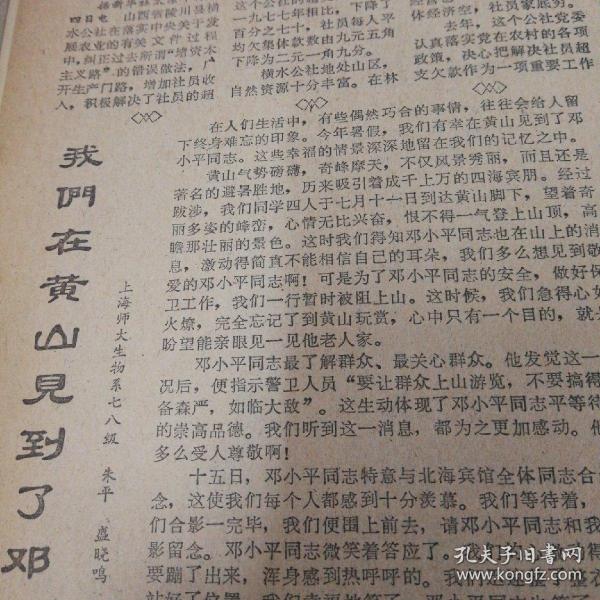 四日电 山西省陵川县横
水公社在落实中央关于发
展农业的有关文件过程
中，纠正过去所谓“堵资本
主义路”的错误做法，广
开生产门路，增加社员收
入，积极解决了社员的超
一九七七年相比，下
百分之七十，社员每人平
均欠集体款数由九元五角
下降为二元一角九分。
横水公社地处山区，
自然资源十分丰富。在林
体经济空，社员家底穷。
去年，这个公社党委
认真落实党在农村的各项
政策，决心把解决社员超
支欠款作为一项重要工作
我們在黄山見到了邓
上海师大生物系七八级 朱平 盛晓鸣
在人们生活中，有些偶然巧合的事情，往往会给人留
下终身难忘的印象。今年暑假，我们有幸在黄山见到了邓
小平同志。这些幸福的情景深深地留在我们的记忆之中
黄山气势磅礴，奇峰摩天，不仅风景秀丽，而且还是
著名的避暑胜地，历来吸引着成千上万的四海宾朋。经过
跋涉，我们同学四人于七月十一日到达黄山脚下，望着奇
丽多姿的峰峦，心情无比兴奋，恨不得一气登上山顶，高
瞻那壮丽的景色。这时我们得知邓小平同志也在山上的消
息，激动得简直不能相信自己的耳朵，我们多么想见到敬
爱的邓小平同志啊！可是为了邓小平同志的安全，做好保
卫工作，我们一行暂时被阻上山。这时候，我们急得心如
火燎，完全忘记了到黄山玩赏，心中只有一个目的，就是
盼望能亲眼见一见他老人家。
邓小平同志最了解群众、最关心群众。他发觉这一
况后，便指示警卫人员“要让群众上山游览，不要搞得
备森严，如临大敌”。这生动体现了邓小平同志平等待
的崇高品德。我们听到这一消息，都为之更加感动。他
多么受人尊敬啊！
十五日，邓小平同志特意与北海宾馆全体同志合
念，这使我们每个人都感到十分羡慕。我们等待着，
们合影一完毕，我们便围上前去，请邓小平同志和我
影留念。邓小平同志微笑着答应了。我
要蹦了出来，浑身感到热呼呼的。我们
孔夫子旧书网
www.kongfz.com